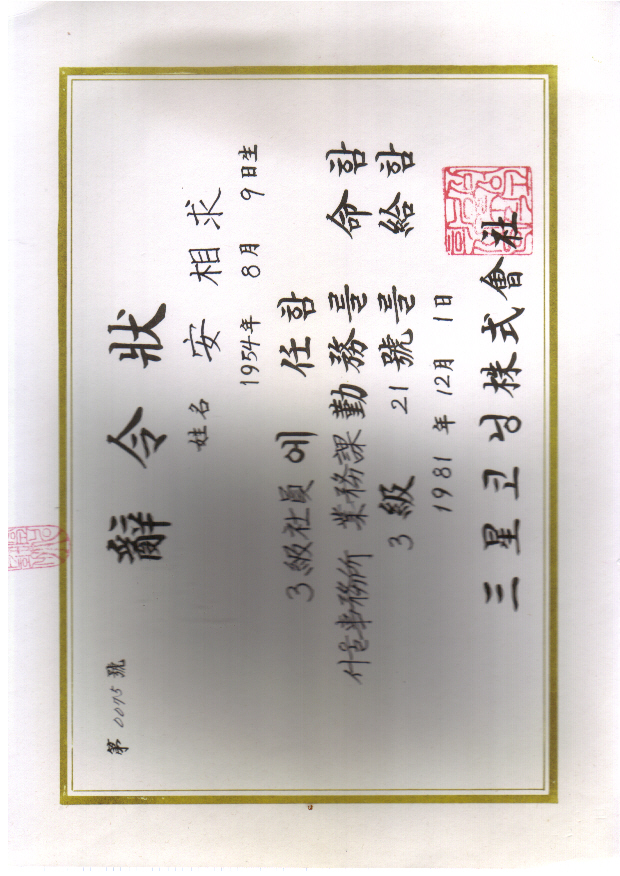 第 0075 號
辭令狀
姓名 安相求
1954年 8月 9日生
3級社員에 任함
서울事務所 業務課 勤務를 命함
3級 21號를 給함
1981年 12月 1日
三星코닝株式會社